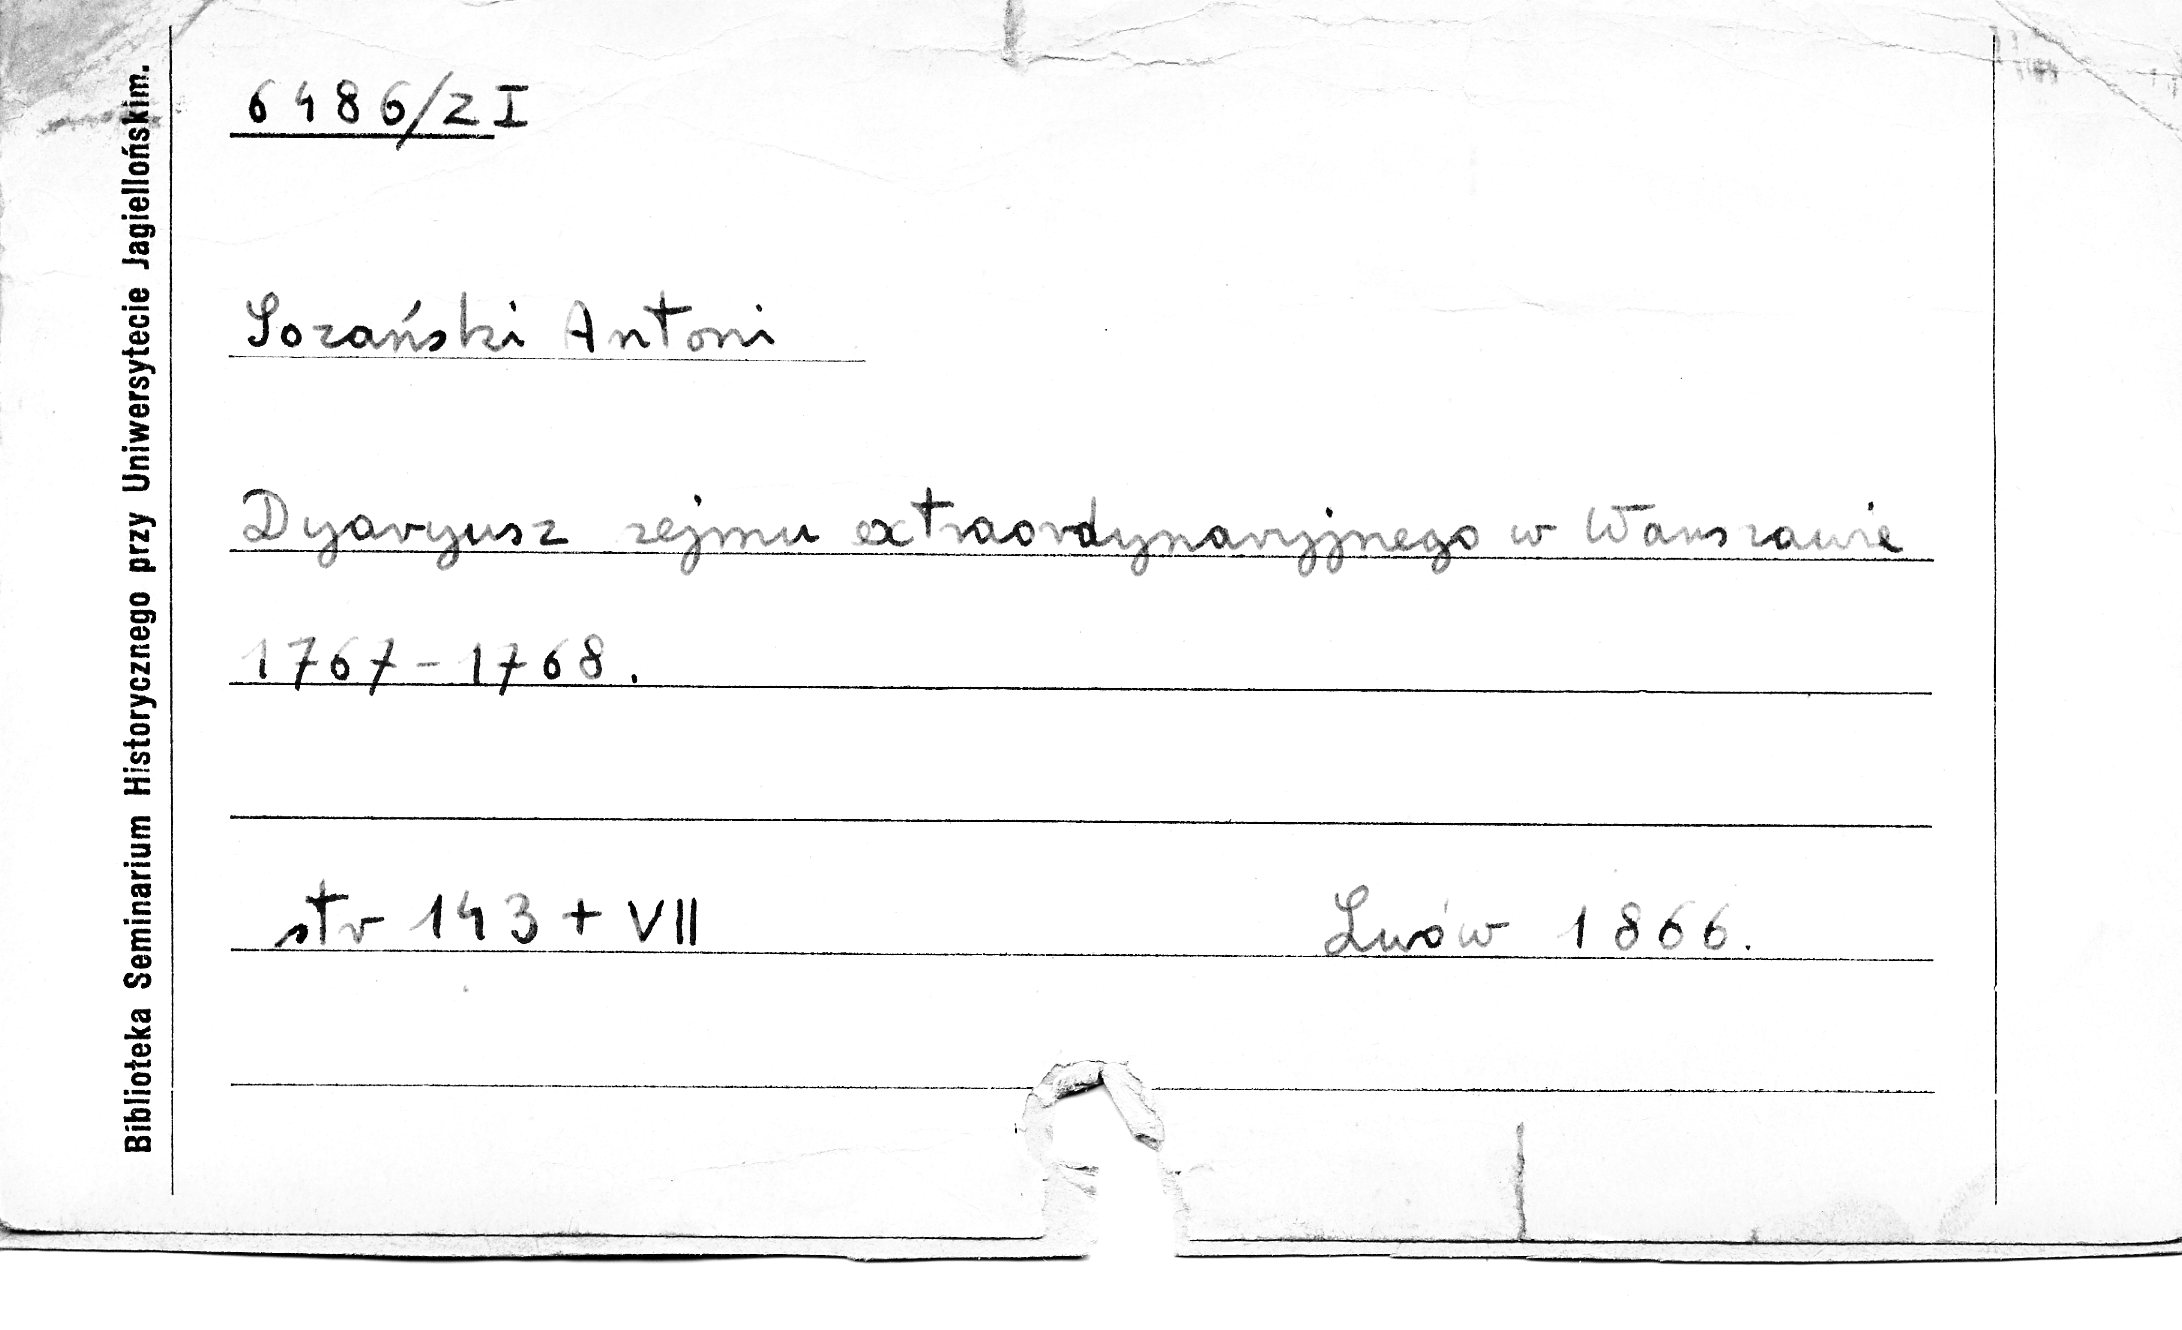 6486/z I
Sozański Antoni
Dyaryusz sejmu extraordynaryjnego w Warszawie
1767-1768.
str 143 + VII Lwów 1866.
Biblioteka Seminarium Historycznego przy Uniwersytecie Jagiellońskim.